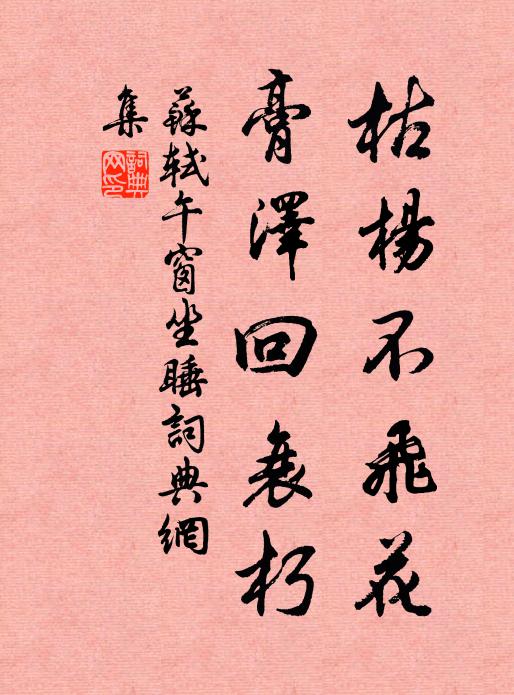 枯楊不飛花
膏澤回衰朽
蘇軾午窗坐睡詞典網
集
詞典网印